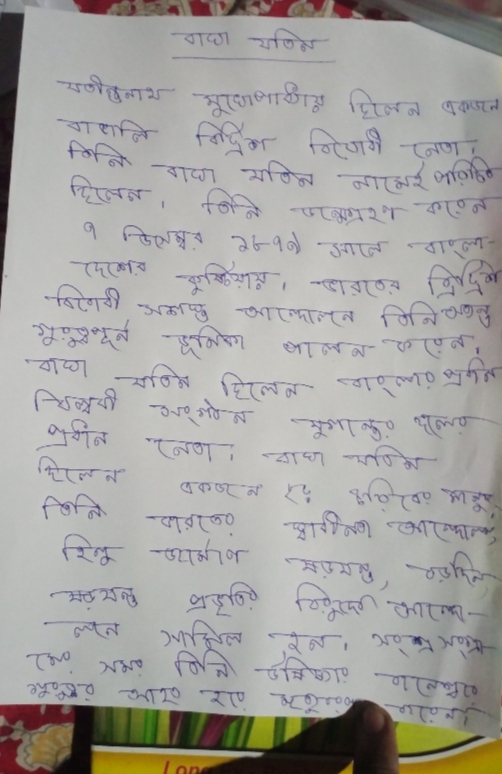 বাঘা যতিন
যতীন্দ্রনাথ মুখোপাধ্যায় ছিলেন একজন
বাঙালি ব্রিটিশ বিরোধী নেতা।
তিনি বাঘা যতিন নামেই পরিচিত
ছিলেন। তিনি জন্মগ্রহণ করেন
৭ ডিসেম্বর ১৮৭৯ সালে বাংলা-
দেশের কুষ্টিয়ায়। ভারতের ব্রিটিশ
বিরোধী সশস্ত্র আন্দোলনে তিনি অত্যন্ত
গুরুত্বপূর্ন ভূমিকা পালন করেন।
বাঘা যতিন ছিলেন বাংলার প্রধান
বিপ্লবী সংগঠন যুগান্তর দলের
প্রধান নেতা। বাঘা যতিন
ছিলেন একজন দৃঢ় চরিত্রের মানুষ,
তিনি ভারতের স্বাধীনতা আন্দোলন,
হিন্দু জার্মাণ ষড়যন্ত্র, বড়দিন
ষড়যন্ত্র প্রভৃতির বিরুদ্ধে আন্দো-
লনে সামিল হন। সশস্ত্র সংগ্রা
মের সময় তিনি উরিষ্যার বালেশ্বরে
গুরুতর আহত হয়ে মৃত্যুবরণ করেন।
Long